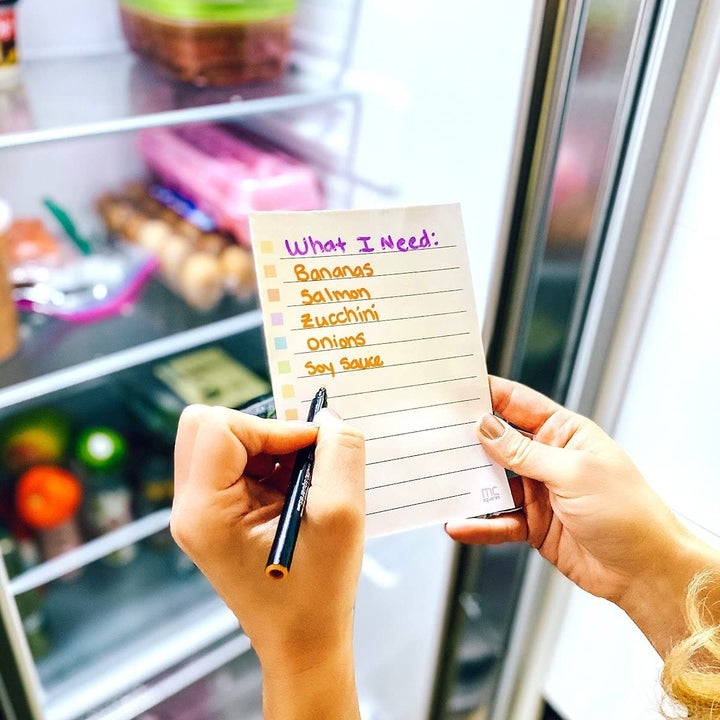 What I Need:
Bananas
Salmon
Zucchini
Onions
Soy Sauce